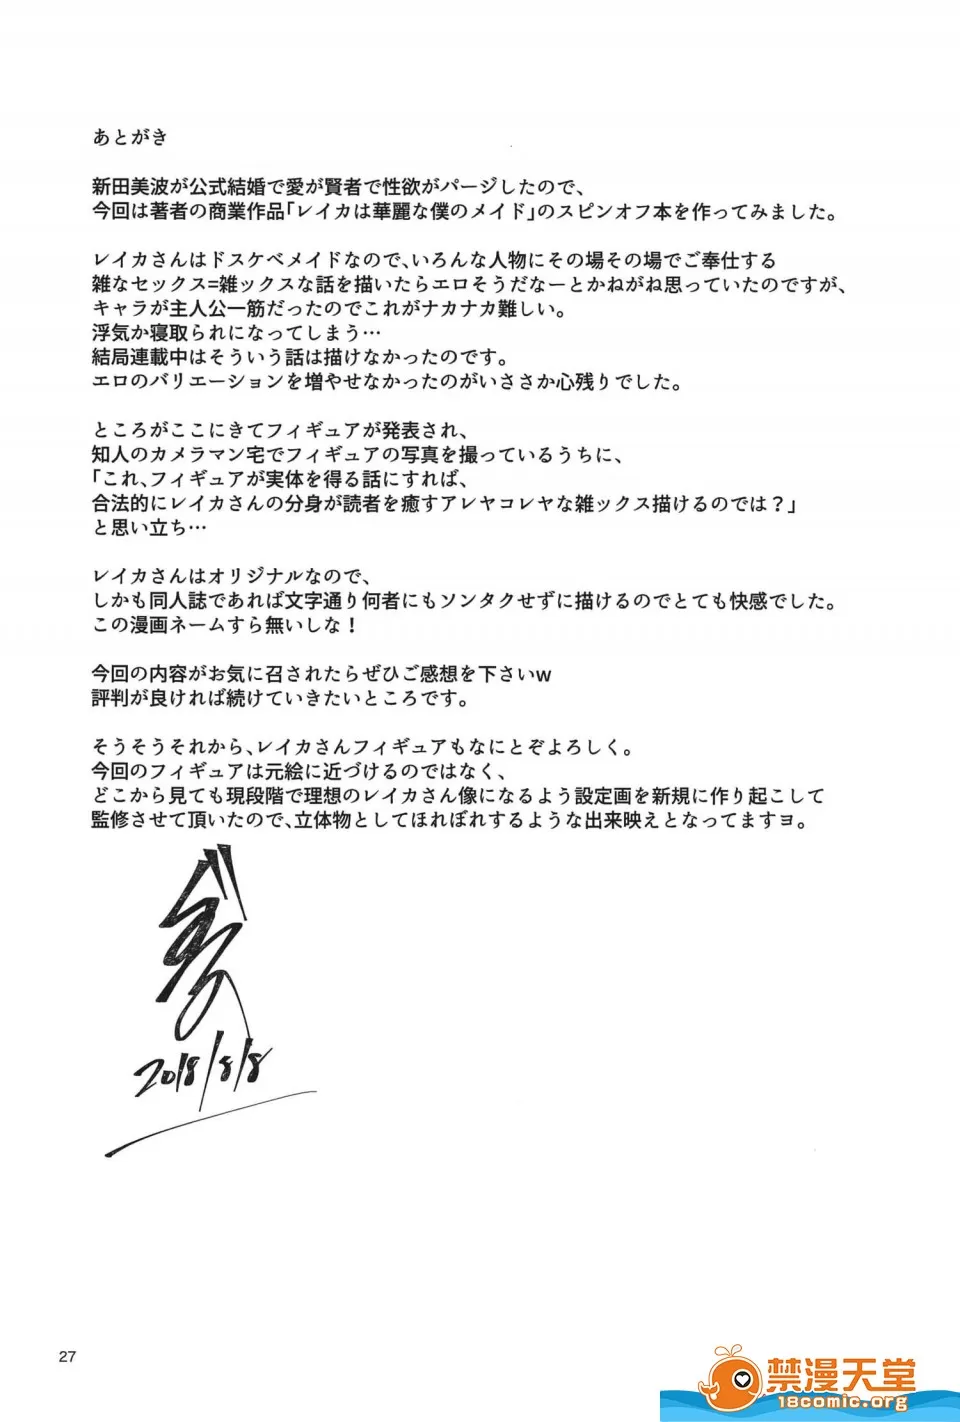 あとがき
新田美波が公式結婚で愛が賢者で性欲がパージしたので、
今回は著者の商業作品「レイカは華麗な僕のメイド」のスピンオフ本を作ってみました。
レイカさんはドスケベメイドなので、いろんな人物にその場その場でご奉仕する
雑なセックス=雑ックスな話を描いたらエロそうだなーとかねがね思っていたのですが、
キャラが主人公一筋だったのでこれがナカナカ難しい。
浮気か寝取られになってしまう…
結局連載中はそういう話は描けなかったのです。
エロのバリエーションを増やせなかったのがいささか心残りでした。
ところがここにきてフィギュアが発表され、
知人のカメラマン宅でフィギュアの写真を撮っているうちに、
「これ、フィギュアが実体を得る話にすれば、
合法的にレイカさんの分身が読者を癒すアレヤコレヤな雑ックス描けるのでは？」
と思い立ち…
レイカさんはオリジナルなので、
しかも同人誌であれば文字通り何者にもソンタクせずに描けるのでとても快感でした。
この漫画ネームすら無いしな！
今回の内容がお気に召されたらぜひご感想を下さいw
評判が良ければ続けていきたいところです。
そうそうそれから、レイカさんフィギュアもなにとぞよろしく。
今回のフィギュアは元絵に近づけるのではなく、
どこから見ても現段階で理想のレイカさん像になるよう設定画を新規に作り起こして
監修させて頂いたので、立体物としてほれぼれするような出来映えとなってますヨ。
2018/8/8
27
禁漫天堂
18comic.org